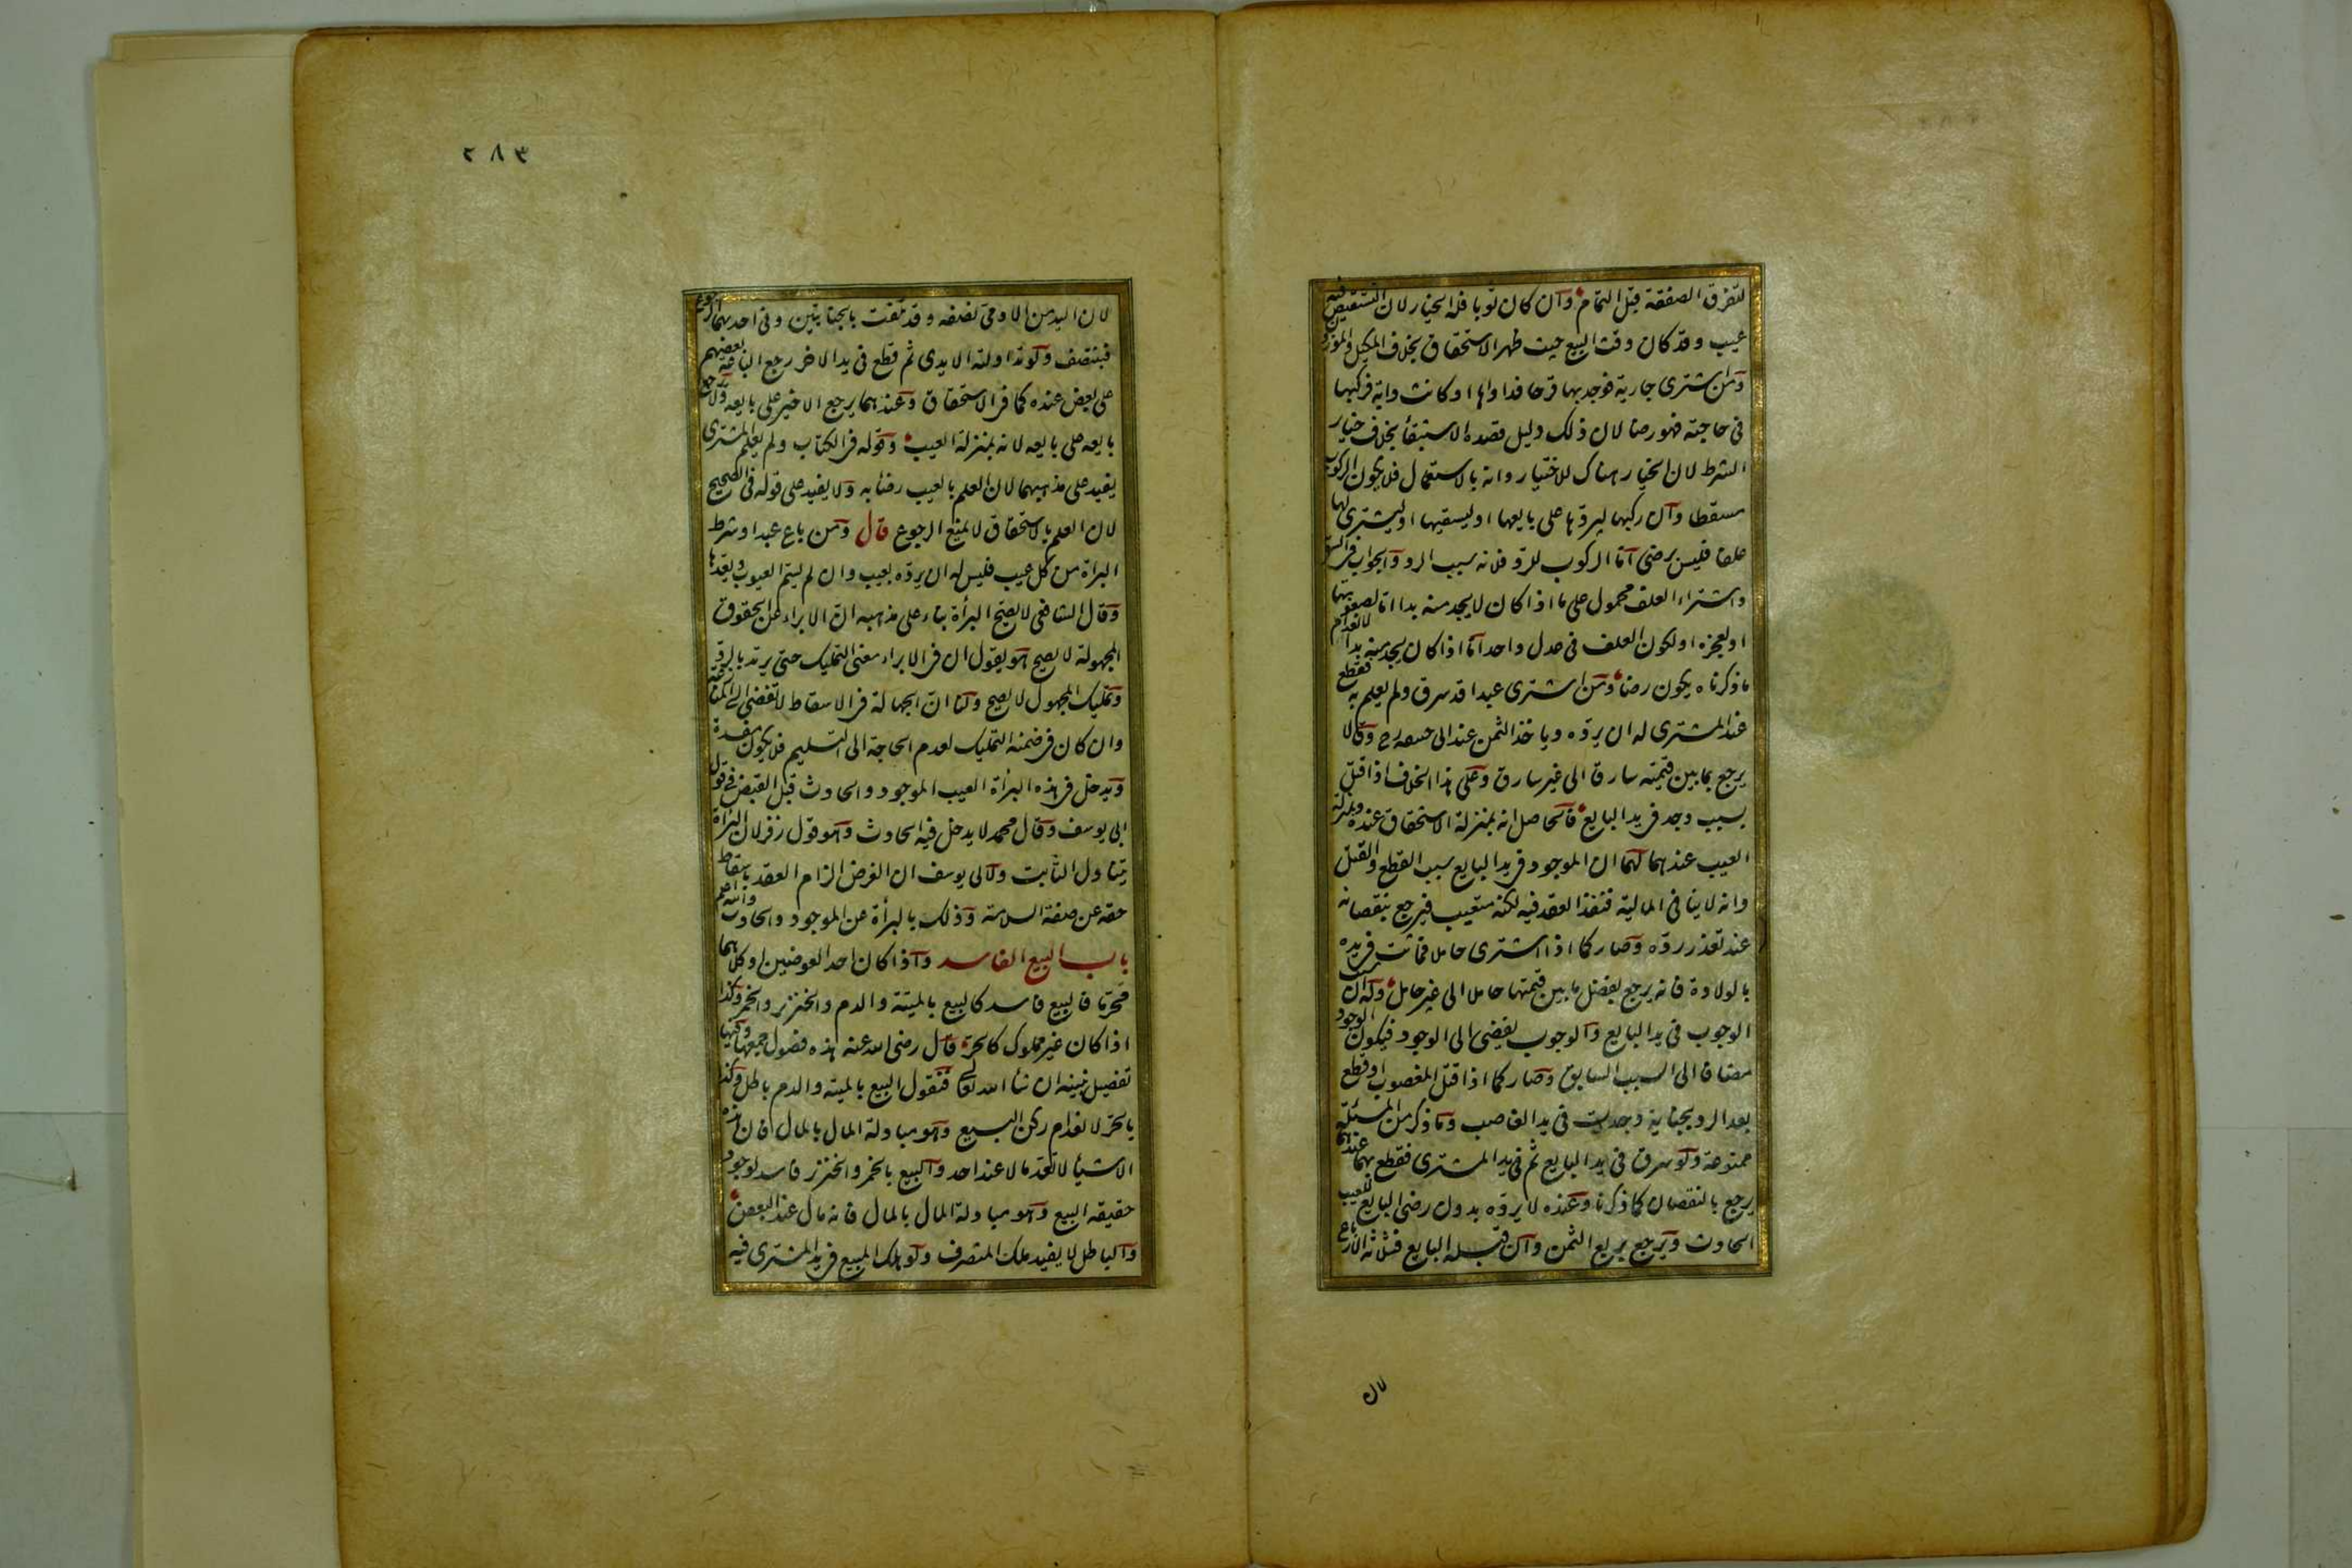 لتفرق الصفقة قبل التمام وان كان ثوبا فله الخيار لان التشقيص فيه
عيب وقد كان وقت البيع حيث ظهر الاستحقاق بخلاف المكيل والموزون
ومن اشترى جارية فوجد بها قرحا فداواها او كانت دابة فركبها
فى حاجته فهو رضا لان ذلك دليل قصده الاستبقاء بخلاف خيار
الشرط لان الخيار هناك للاختبار وانه بالاستعمال فلا يكون الركوب
مسقطا وان ركبها ليردّها على بايعها او ليسقيها او ليشترى لها
علفا فليس برضى امّا الركوب للردّ فلانه سبب الرد والجواب فى السقى
واشتراء العلف محمول على ما اذا كان لا يجد منه بدا امّا لصعوبتها
او لعجزه او لكون العلف فى عدل واحد امّا اذا كان يجد منه بدا لانعدام
ما ذكرناه يكون رضا ومن اشترى عبدا قد سرق ولم يعلم به فقطع
عند المشترى له ان يردّه وياخذ الثمن عند ابى حنيفه رح وقالا
يرجع بما بين قيمته سارقا الى غير سارق وعلى هذا الخلاف اذا قتل
بسبب وجد فى يد البايع فالحاصل انه بمنزلة الاستحقاق عنده وبمنزلة
العيب عندهما لهما ان الموجود فى يد البايع سبب القطع والقتل
وانه لا ينافى المالية فنفذ العقد فيه لكنه متعيب فيرجع بنقصانه
عند تعذر ردّه وصار كما اذا اشترى حاملا فماتت فى يده
بالولادة فانه يرجع بفضل ما بين قيمتها حاملا الى غير حامل وله ان سبب
الوجوب فى يد البايع والوجوب يفضى الى الوجود فيكون الوجود
مضافا الى السبب السابق وصار كما اذا قتل المغصوب او قطع
بعد الرد بجناية وجدت فى يد الغاصب وما ذكر من المسئلة
ممنوعة ولو سرق فى يد البايع ثم فى يد المشترى فقطع بهما عندهما
يرجع بالنقصان كما ذكرنا وعنده لا يردّه بدون رضى البايع للعيب
الحادث ويرجع بربع الثمن وان قبله البايع فبثلاثة الارباع
لان
٢٨٣
لان اليد من الادمى نصفه وقد تلفت بالجنايتين وفى احدهما الرجوع
فيتنصف ولو تداولته الايدى ثم قطع فى يد الاخر رجع الباعة بعضهم
على بعض عنده كما فى الاستحقاق وعندهما يرجع الاخير على بايعه ولا يرجع
بايعه على بايعه لانه بمنزلة العيب وقوله فى الكتاب ولم يعلم المشترى
يفيد على مذهبهما لان العلم بالعيب رضا به ولا يفيد على قوله فى الصحيح
لان العلم بالاستحقاق لا يمنع الرجوع قال ومن باع عبدا وشرط
البراة من كل عيب فليس له ان يردّه بعيب وان لم يسمّ العيوب بعددها
وقال الشافعى لا يصح البرأة بناء على مذهبه انّ الابراء عن الحقوق
المجهولة لا يصح هو يقول ان فى الابراء معنى التمليك حتى يرتد بالرد
وتمليك المجهول لا يصح ولنا انّ الجهالة فى الاسقاط لا تفضى الى المنازعة
وان كان فى ضمنه التمليك لعدم الحاجة الى التسليم فلا يكون مفسدة
ويدخل فى هذه البرأة العيب الموجود والحادث قبل القبض فى قول
ابى يوسف وقال محمد لا يدخل فيه الحادث وهو قول زفر لان البراة
يتناول الثابت ولابى يوسف ان الغرض الزام العقد باسقاط
حقه عن صفة السلامة وذلك بالبرأة عن الموجود والحادث والله اعلم
باب البيع الفاسد واذا كان احد العوضين او كلاهما
محرّما فالبيع فاسد كالبيع بالميتة والدم والخنزير والخمر وكذا
اذا كان غير مملوك كالحرّ قال رضى الله عنه هذه فصول جمعها وفيها
تفصيل نبينه ان شاء الله تعا فنقول البيع بالميته والدم باطل وكذا
بالحرّ لانعدام ركن البيع وهو مبادلة المال بالمال فان هذه
الاشياء لا تعدّ مالا عند احد والبيع بالخمر والخنزير فاسد لوجود
حقيقه البيع وهو مبادلة المال بالمال فانه مال عند البعض
والباطل لا يفيد ملك التصرف ولو هلك المبيع فى يد المشترى فيه